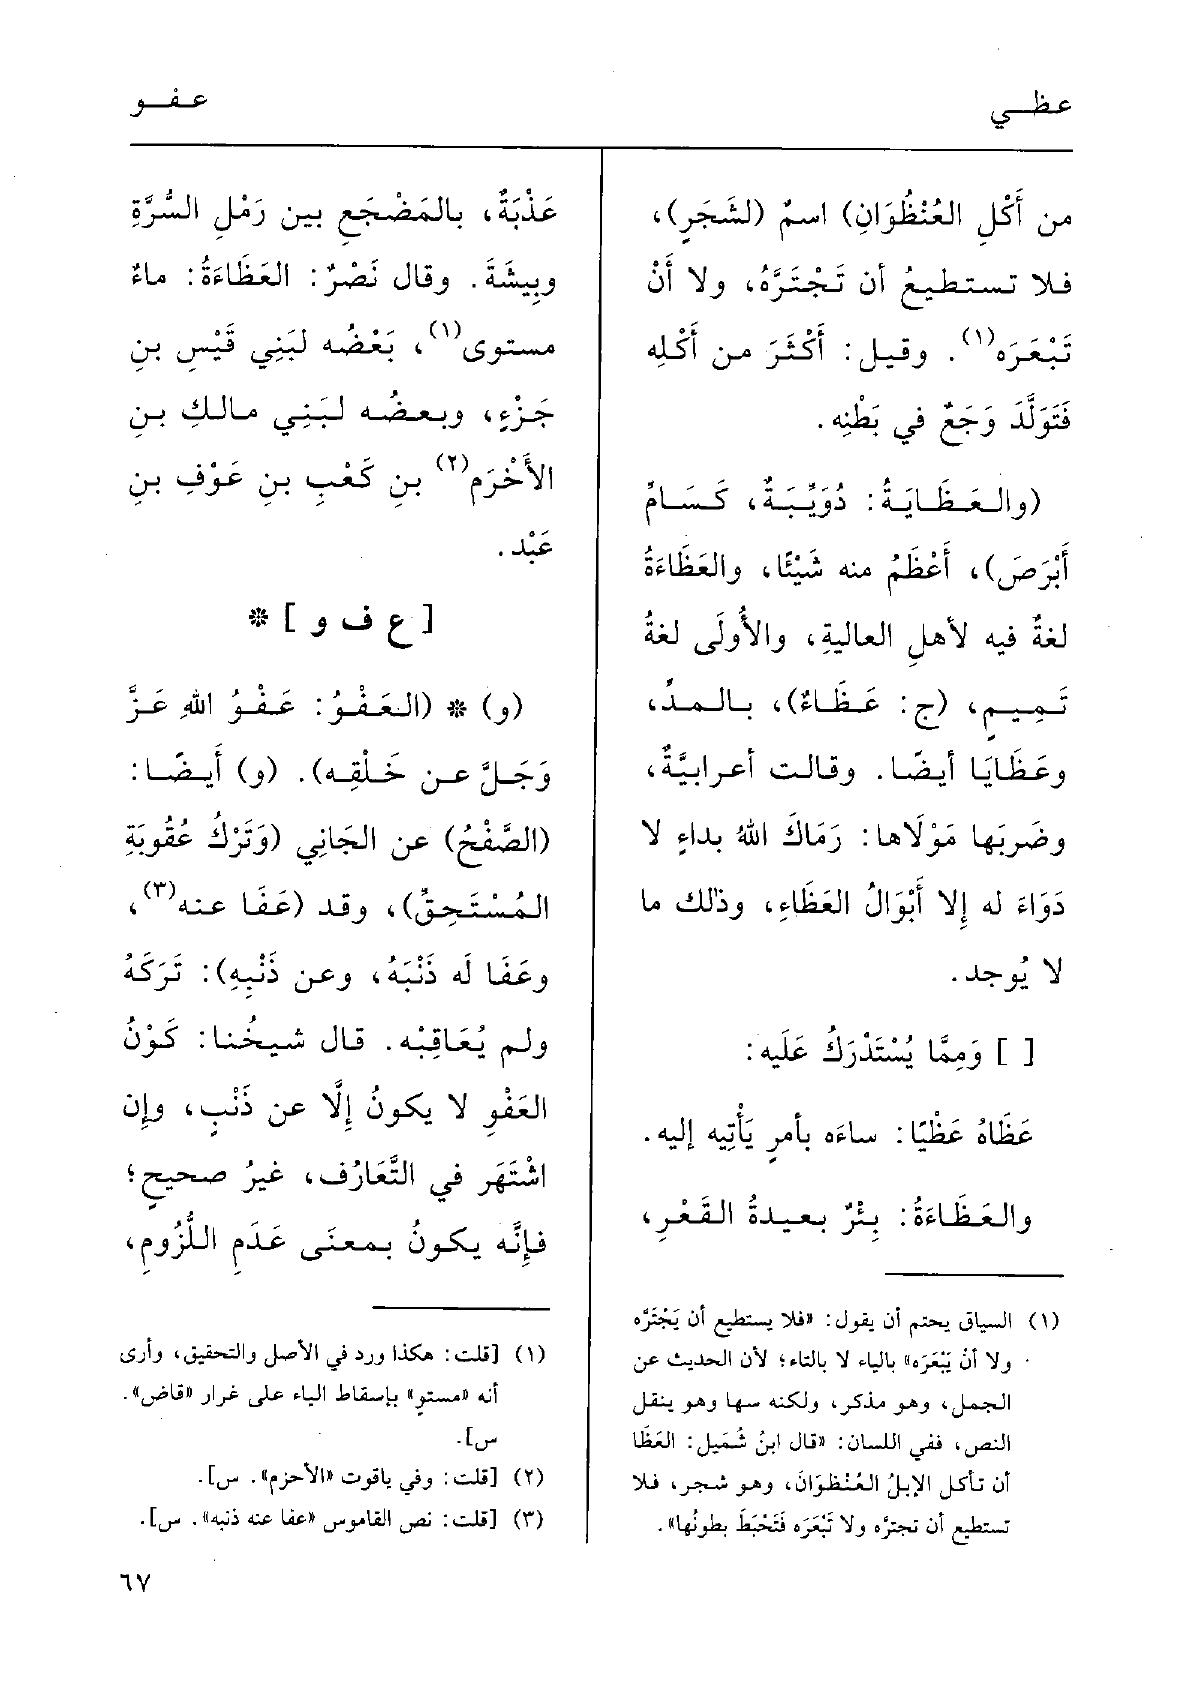 عظـي
عـفـو
من أَكْلِ العُنْظُوَانِ) اسمٌ (لشَجَرٍ)،
فلا تستطيعُ أن تَجْتَرَّهُ، ولا أَنْ
تَبْعَرَه(١). وقيل: أَكْثَرَ من أَكْلِه
فَتَوَلَّدَ وَجَعٌ في بَطْنِه.
(والعَظَايَةُ: دُوَيْبَةٌ، كَسَامِّ
أَبْرَصَ)، أَعْظَمُ منه شَيْئًا، والعَظَاءَةُ
لغةٌ فيه لأهلِ العاليةِ، والأُولَى لغةُ
تَمِيمٍ، (ج: عَظَاءٌ)، بالمدِّ،
وعَظَايَا أيضًا. وقالت أعرابيَّةٌ،
وضربَها مَوْلَاها: رَمَاكَ اللهُ بداءٍ لا
دَوَاءَ له إلا أَبْوَالُ العَظَاءِ، وذلك ما
لا يُوجد.
[ ] وَمِمَّا يُسْتَدْرَكُ عَلَيه:
عَظَاهُ عَظْيًا: ساءَه بأمرٍ يَأْتِيه إليه.
والعَظَاءَةُ: بِئْرٌ بعيدةُ القَعْرِ،
(١) السياق يحتم أن يقول: «فلا يستطيع أن يَجْتَرَّه
ولا أن يَبْعَرَه» بالياء لا بالتاء؛ لأن الحديث عن
الجمل، وهو مذكر، ولكنه سها وهو ينقل
النص، ففي اللسان: «قال ابنُ شُمَيل: العَظَا
أن تأكل الإبلُ العُنْظُوَانَ، وهو شجر، فلا
تستطيع أن تجترَّه ولا تَبْعَرَه فَتَحْبَطَ بطونُها».
عَذْبَةٌ، بالمَضْجَعِ بين رَمْلِ السُّرَّةِ
وبِيشَةَ. وقال نَصْرٌ: العَظَاءَةُ: ماءٌ
مستوى(١)، بَعْضُه لبَنِي قَيْسِ بنِ
جَزْءٍ، وبعضُه لبَنِي مالكِ بنِ
الأَخْرَمِ(٢) بنِ كَعْبِ بنِ عَوْفِ بنِ
عَبْد.
[ ع ف و ] *
(و) * (العَفْوُ: عَفْوُ اللهِ عَزَّ
وَجَلَّ عن خَلْقِه). (و) أيضًا:
(الصَّفْحُ) عن الجَانِي (وَتَرْكُ عُقُوبَةِ
المُسْتَحِقِّ)، وقد (عَفَا عنه(٣)،
وعَفَا لَه ذَنْبَهُ، وعن ذَنْبِهِ): تَرَكَهُ
ولم يُعَاقِبْه. قال شيخُنا: كَوْنُ
العَفْوِ لا يكونُ إلَّا عن ذَنْبٍ، وإن
اشْتَهَر في التَّعَارُف، غيرُ صحيحٍ؛
فإنَّه يكونُ بمعنَى عَدَمِ اللُّزُومِ،
(١) [قلت: هكذا ورد في الأصل والتحقيق، وأرى
أنه «مستوٍ» بإسقاط الياء على غرار «قاض».
س].
(٢) [قلت: وفي ياقوت «الأحزم». س].
(٣) [قلت: نص القاموس «عفا عنه ذنبه». س].
٦٧